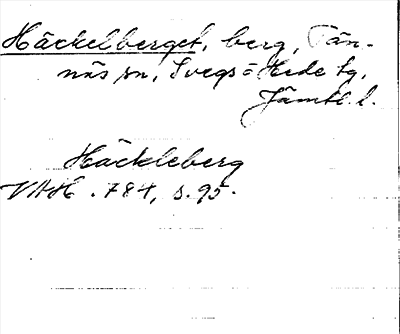 Häckelberget, berg, Tän-
näs sn, Svegs o Hede tg,
Jämtl. l.
Häckleberg
VAH. 784, s. 95.